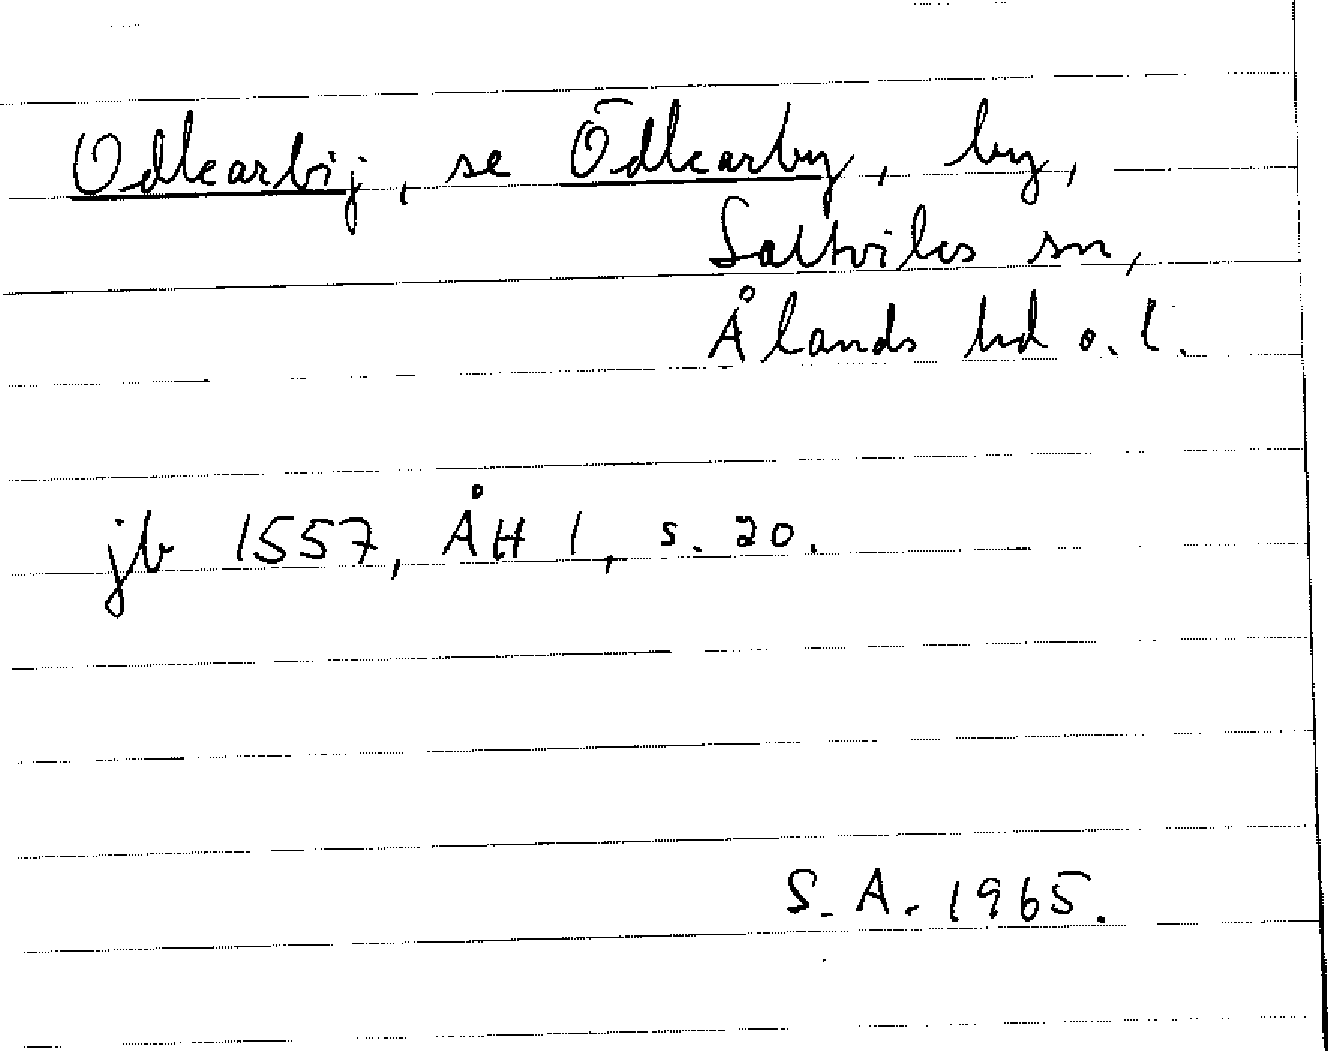 Odkarbij, se Ödkarby, by,
Saltviks sn,
Ålands hd o. l.
jb 1557, ÅH 1, s. 20.
S. A. 1965.